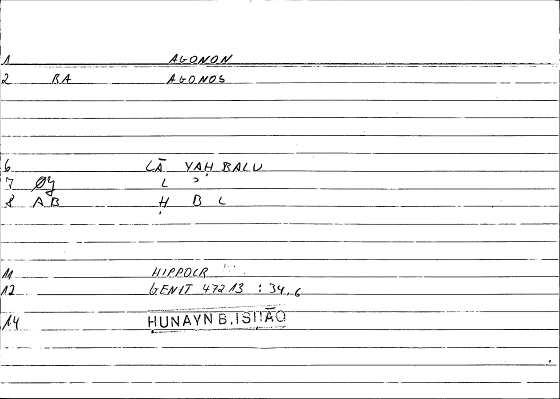 1 AGONON
2 RA AGONOS
6 LĀ YAḤBALU
7 L ʾ
8 AB Ḥ B L
11 HIPPOCR
12 GENIT 472 13 : 34,6
14 HUNAYN B. ISḤĀQ